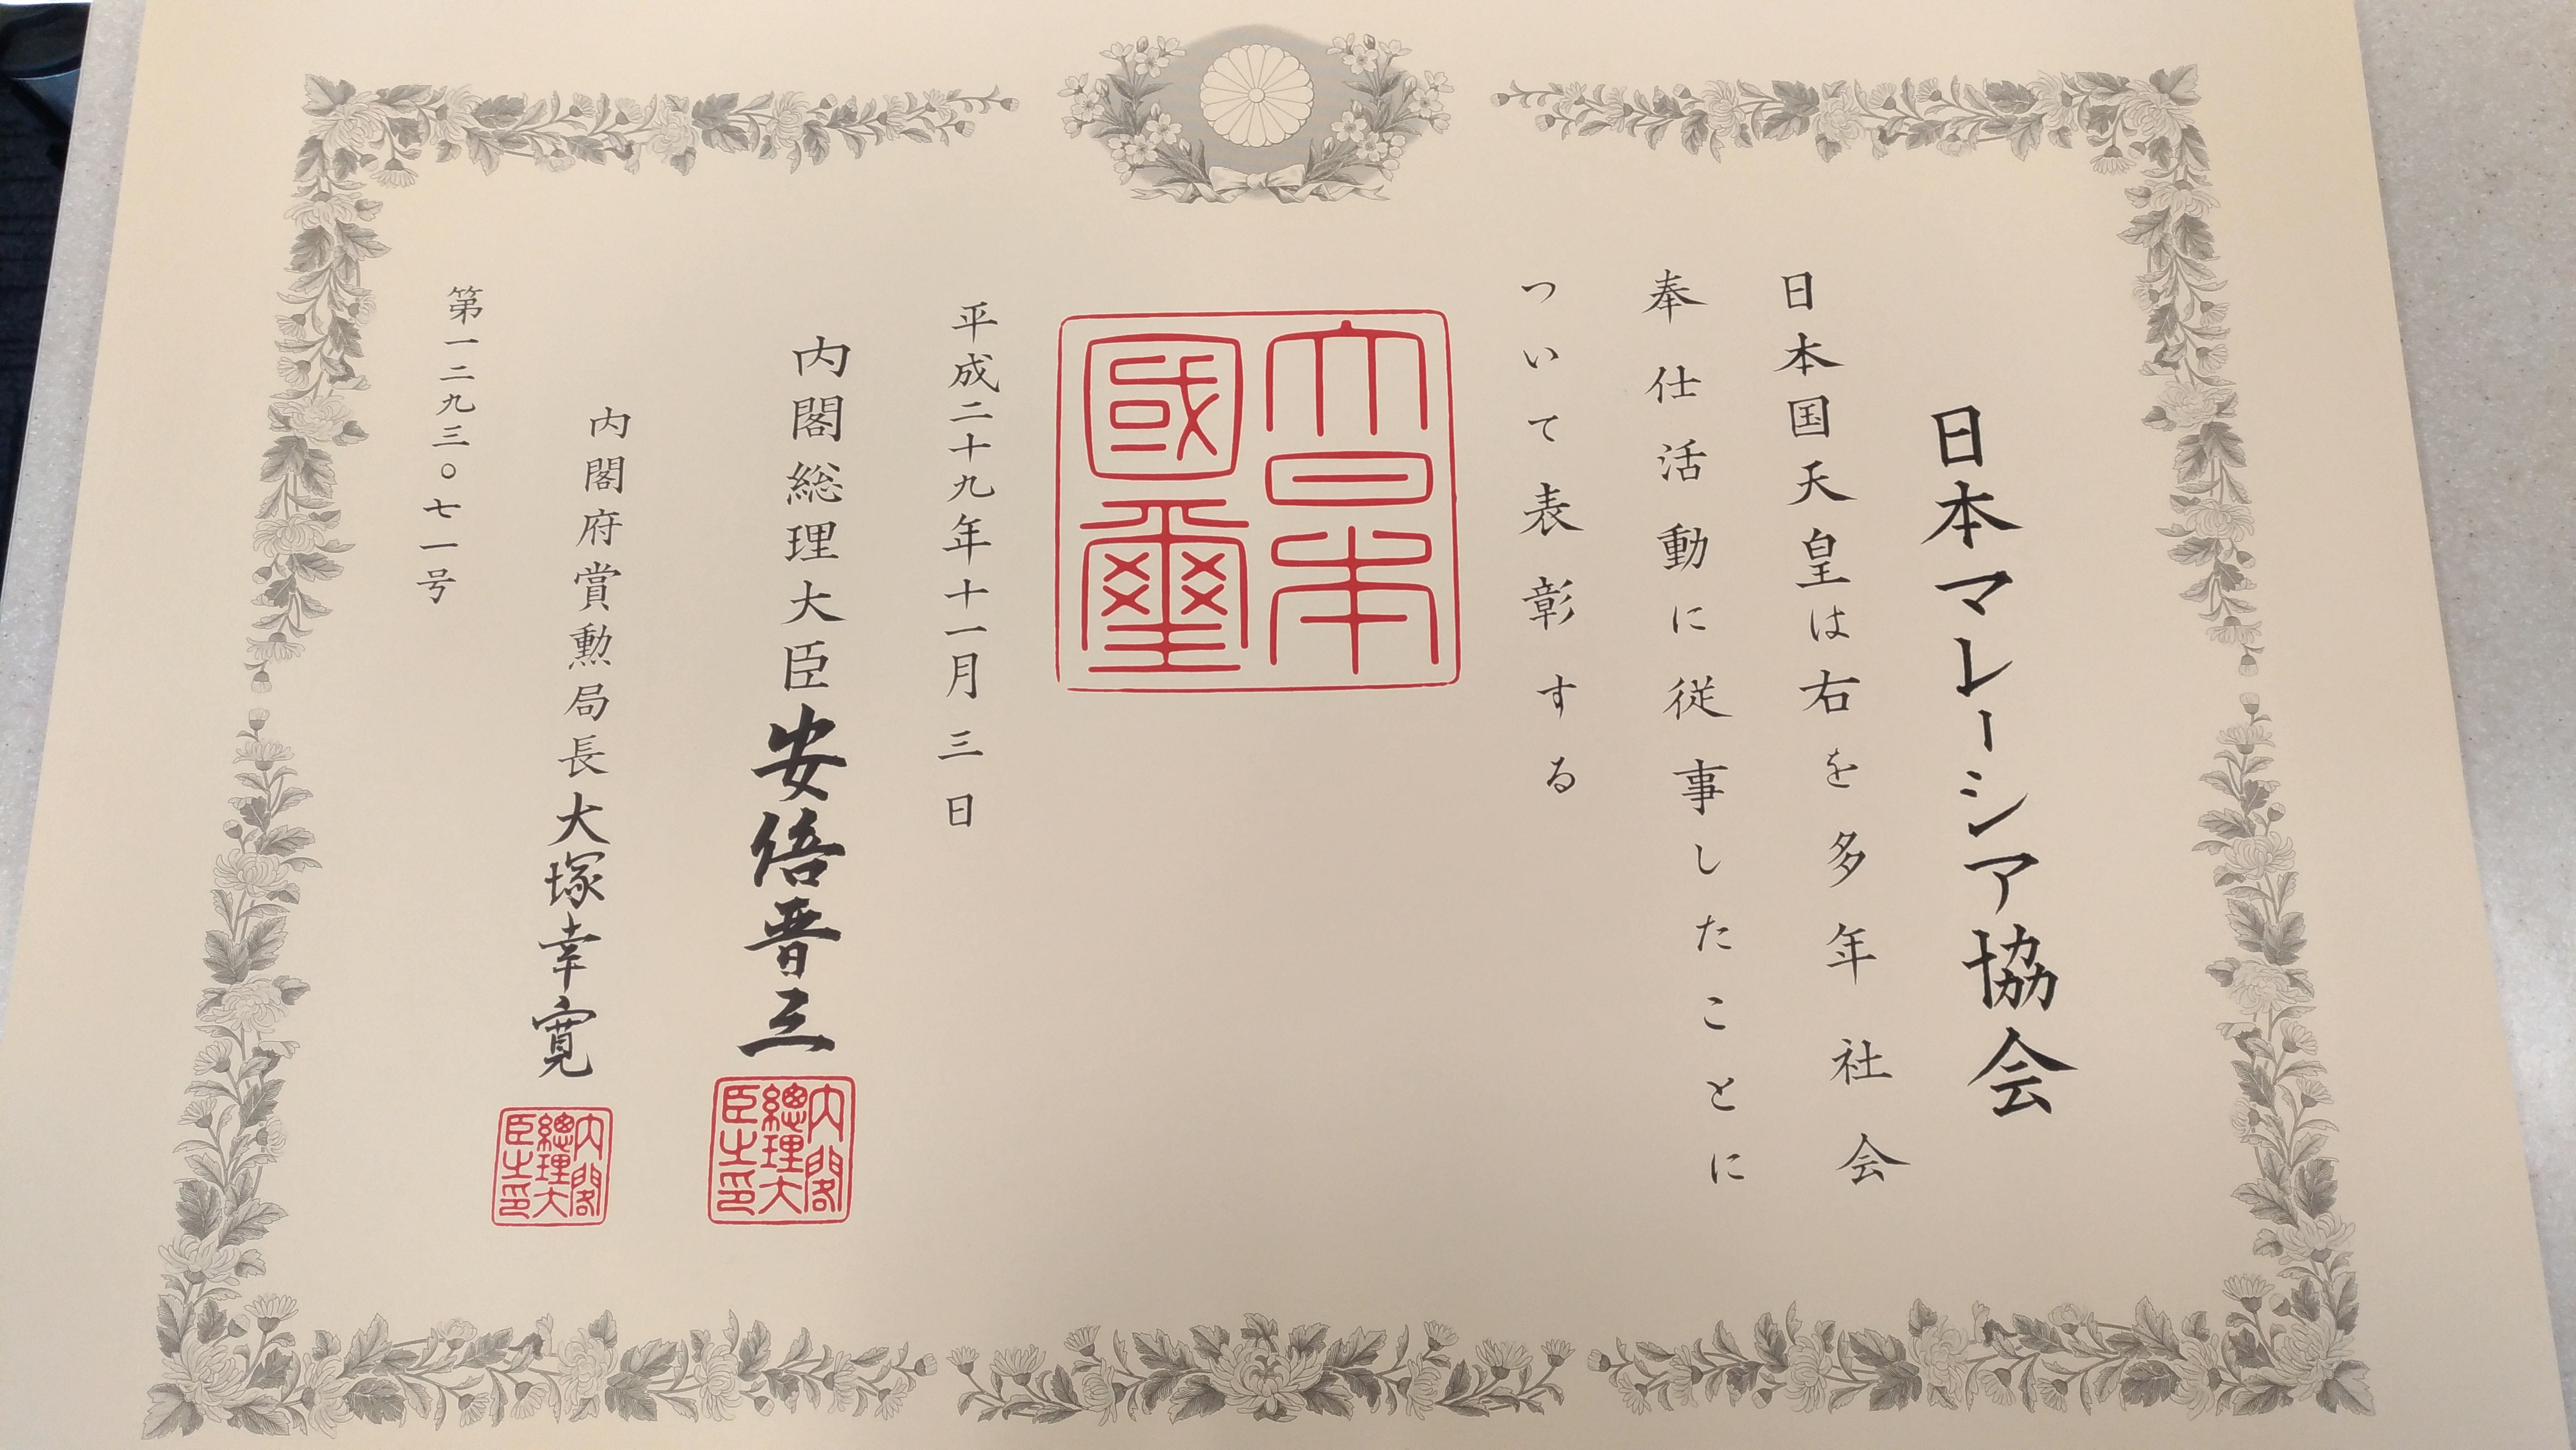 日本マレーシア協会
日本国天皇は右を多年社会
奉仕活動に従事したことに
ついて表彰する
大日本
國璽
平成二十九年十一月三日
内閣総理大臣安倍晋三
内閣
總理大
臣之印
内閣府賞勲局長大塚幸寛
内閣
總理大
臣之印
第一二九三〇七一号